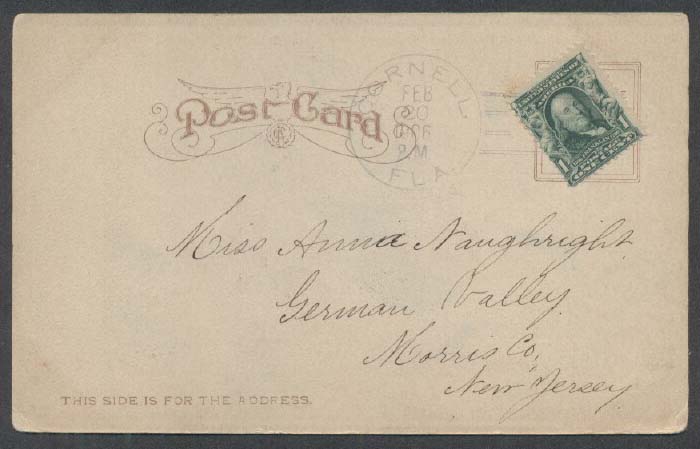 Post Card
CORNELL
FEB
20
1906
PM
FLA
1
Miss Annie Naughright
German Valley
Morris Co,
New Jersey
THIS SIDE IS FOR THE ADDRESS.